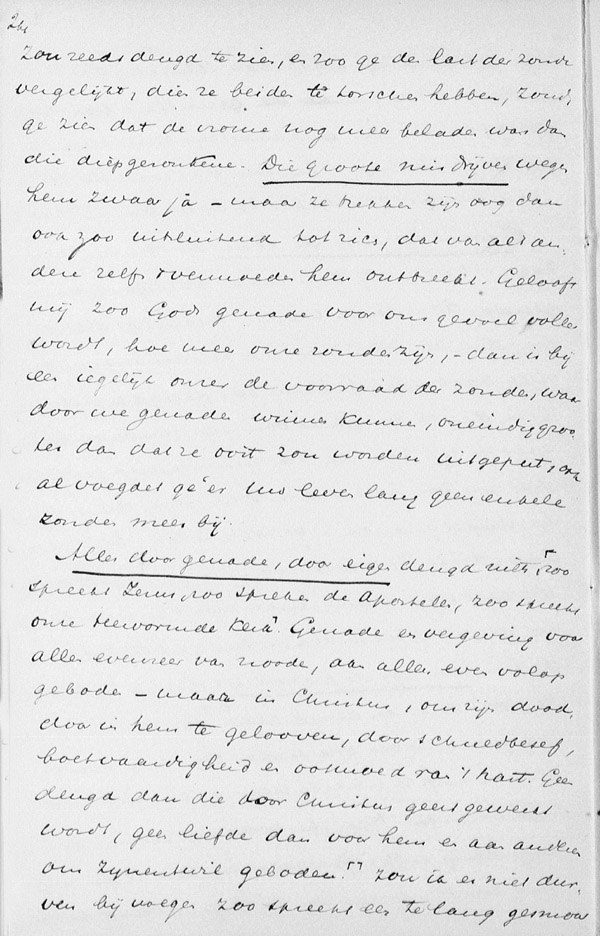 zou reeds deugd te zien, en zoo ge den last der zonde
vergelijkt, dien ze beiden te torschen hebben, zoudt
ge zien dat de vrome nog meer beladen was dan
die diepgezonkene. Die groote misdrijven wegen
hem zwaar ja – maar ze trekken zijn oog dan
ook zoo uitsluitend tot zich, dat van al 't an-
dere zelfs 't vermoeden hem ontbreekt. Gelooft
mij zoo Gods genade voor ons gevoel voller
wordt, hoe meer onze zonden zijn, – dan is bij
een iegelijk onzer de voorraad der zonden, waar
door we genade winnen kunnen, oneindig groo
ter dan dat ze ooit zou worden uitgeput, ook
al voegdet ge er uw leven lang geen enkele
zonde meer bij.
Alles door genade, door eigen deugd niets, "zoo
spreekt Jezus, zoo spreken de Apostelen, zoo spreekt
onze Hervormde Kerk. Genade en vergeving voor
allen evenzeer van noode, aan allen even volop
geboden – maar in Christus, om zijn dood,
door in hem te gelooven, door schuldbesef,
boetvaardigheid en ootmoed van 't hart. Geen
deugd dan die door Christus geest gewerkt
wordt, geen liefde dan voor hem en aan anderen
om Zijnentwil geboden." Zou ik er niet dur-
ven bij voegen zoo spreekt een te lang gesmoor